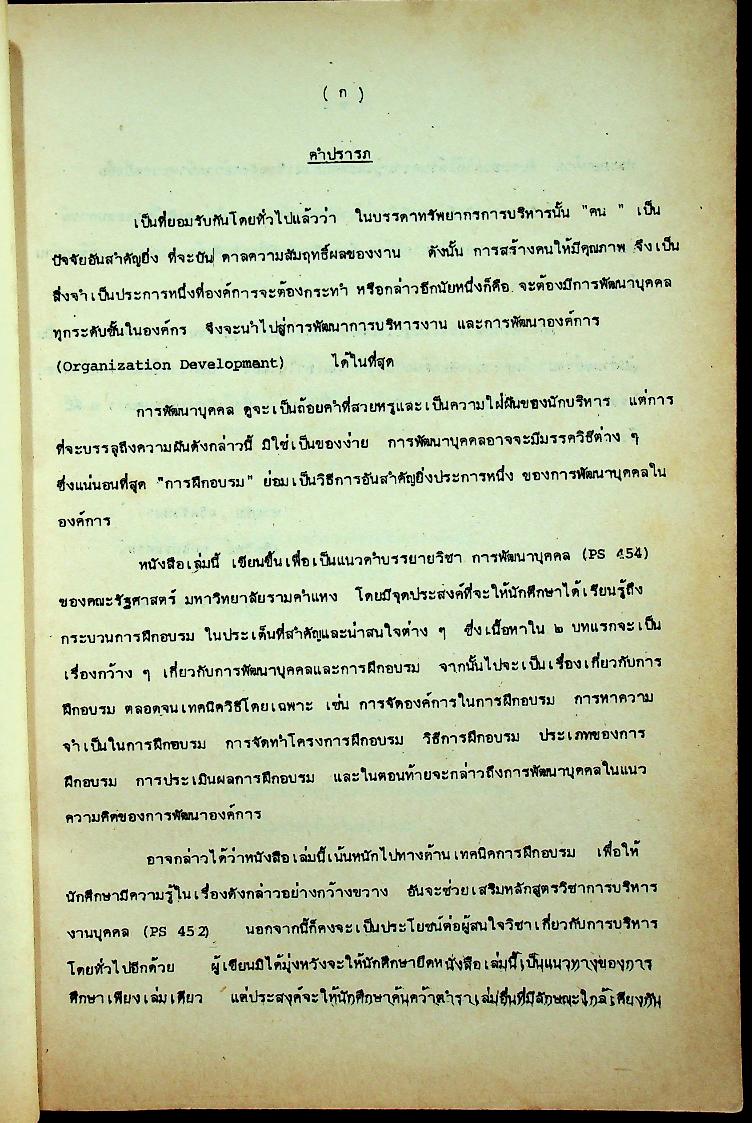 ( ก )
คำปรารภ
เป็นที่ยอมรับกันโดยทั่วไปแล้วว่า ในบรรดาทรัพยากรการบริหารนั้น "คน " เป็น
ปัจจัยอันสำคัญยิ่ง ที่จะบัน ดาลความสัมฤทธิ์ผลของงาน ดังนั้น การสร้างคนให้มีคุณภาพ จึงเป็น
สิ่งจำเป็นประการหนึ่งที่องค์การจะต้องกระทำ หรือกล่าวอีกนัยหนึ่งก็คือ จะต้องมีการพัฒนาบุคคล
ทุกระดับชั้นในองค์กร จึงจะนำไปสู่การพัฒนาการบริหารงาน และการพัฒนาองค์การ
(Organization Development) ได้ในที่สุด
การพัฒนาบุคคล ดูจะเป็นถ้อยคำที่สวยหรูและเป็นความใฝ่ฝันของนักบริหาร แต่การ
ที่จะบรรลุถึงความฝันดังกล่าวนี้ มิใช่เป็นของง่าย การพัฒนาบุคคลอาจจะมีมรรควิธีต่าง ๆ
ซึ่งแน่นอนที่สุด "การฝึกอบรม" ย่อมเป็นวิธีการอันสำคัญยิ่งประการหนึ่ง ของการพัฒนาบุคคลใน
องค์การ
หนังสือเล่มนี้ เขียนขึ้นเพื่อเป็นแนวคำบรรยายวิชา การพัฒนาบุคคล (PS 454)
ของคณะรัฐศาสตร์ มหาวิทยาลัยรามคำแหง โดยมีจุดประสงค์ที่จะให้นักศึกษาได้เรียนรู้ถึง
กระบวนการฝึกอบรม ในประเด็นที่สำคัญและน่าสนใจต่าง ๆ ซึ่งเนื้อหาใน ๒ บทแรกจะเป็น
เรื่องกว้าง ๆ เกี่ยวกับการพัฒนาบุคคลและการฝึกอบรม จากนั้นไปจะเป็นเรื่องเกี่ยวกับการ
ฝึกอบรม ตลอดจนเทคนิควิธีโดยเฉพาะ เช่น การจัดองค์การในการฝึกอบรม การหาความ
จำเป็นในการฝึกอบรม การจัดทำโครงการฝึกอบรม วิธีการฝึกอบรม ประเภทของการ
ฝึกอบรม การประเมินผลการฝึกอบรม และในตอนท้ายจะกล่าวถึงการพัฒนาบุคคลในแนว
ความคิดของการพัฒนาองค์การ
อาจกล่าวได้ว่าหนังสือเล่มนี้เน้นหนักไปทางด้านเทคนิคการฝึกอบรม เพื่อให้
นักศึกษามีความรู้ในเรื่องดังกล่าวอย่างกว้างขวาง อันจะช่วยเสริมหลักสูตรวิชาการบริหาร
งานบุคคล (PS 452) นอกจากนี้ก็คงจะเป็นประโยชน์ต่อผู้สนใจวิชาเกี่ยวกับการบริหาร
โดยทั่วไปอีกด้วย ผู้เขียนมิได้มุ่งหวังจะให้นักศึกษายึดหนังสือเล่มนี้เป็นแนวทางของการ
ศึกษาเพียงเล่มเดียว แต่ประสงค์จะให้นักศึกษาค้นคว้าตำราเล่มอื่นที่มีลักษณะใกล้เคียงกัน